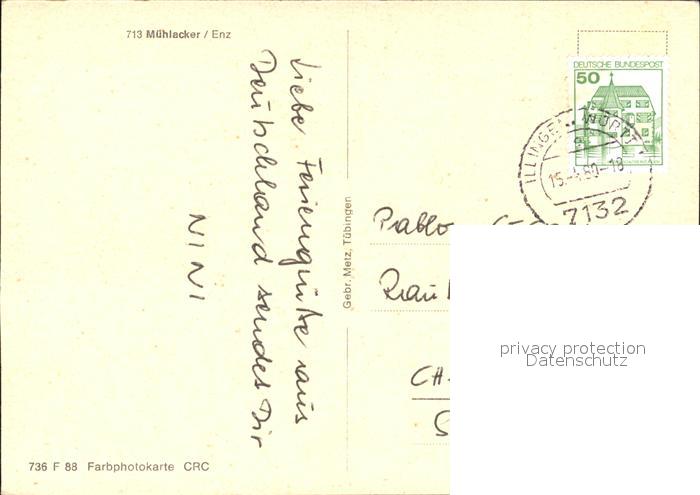 713 Mühlacker / Enz
Liebe Feriengrüße aus
Deutschland sendet Dir
NINI
736 F 88 Farbphotokarte CRC
Gebr. Metz, Tübingen
DEUTSCHE BUNDESPOST
50
ILLINGEN, WÜRTT
15.-4.80-18
7132
Pablo
CH-
privacy protection
Datenschutz